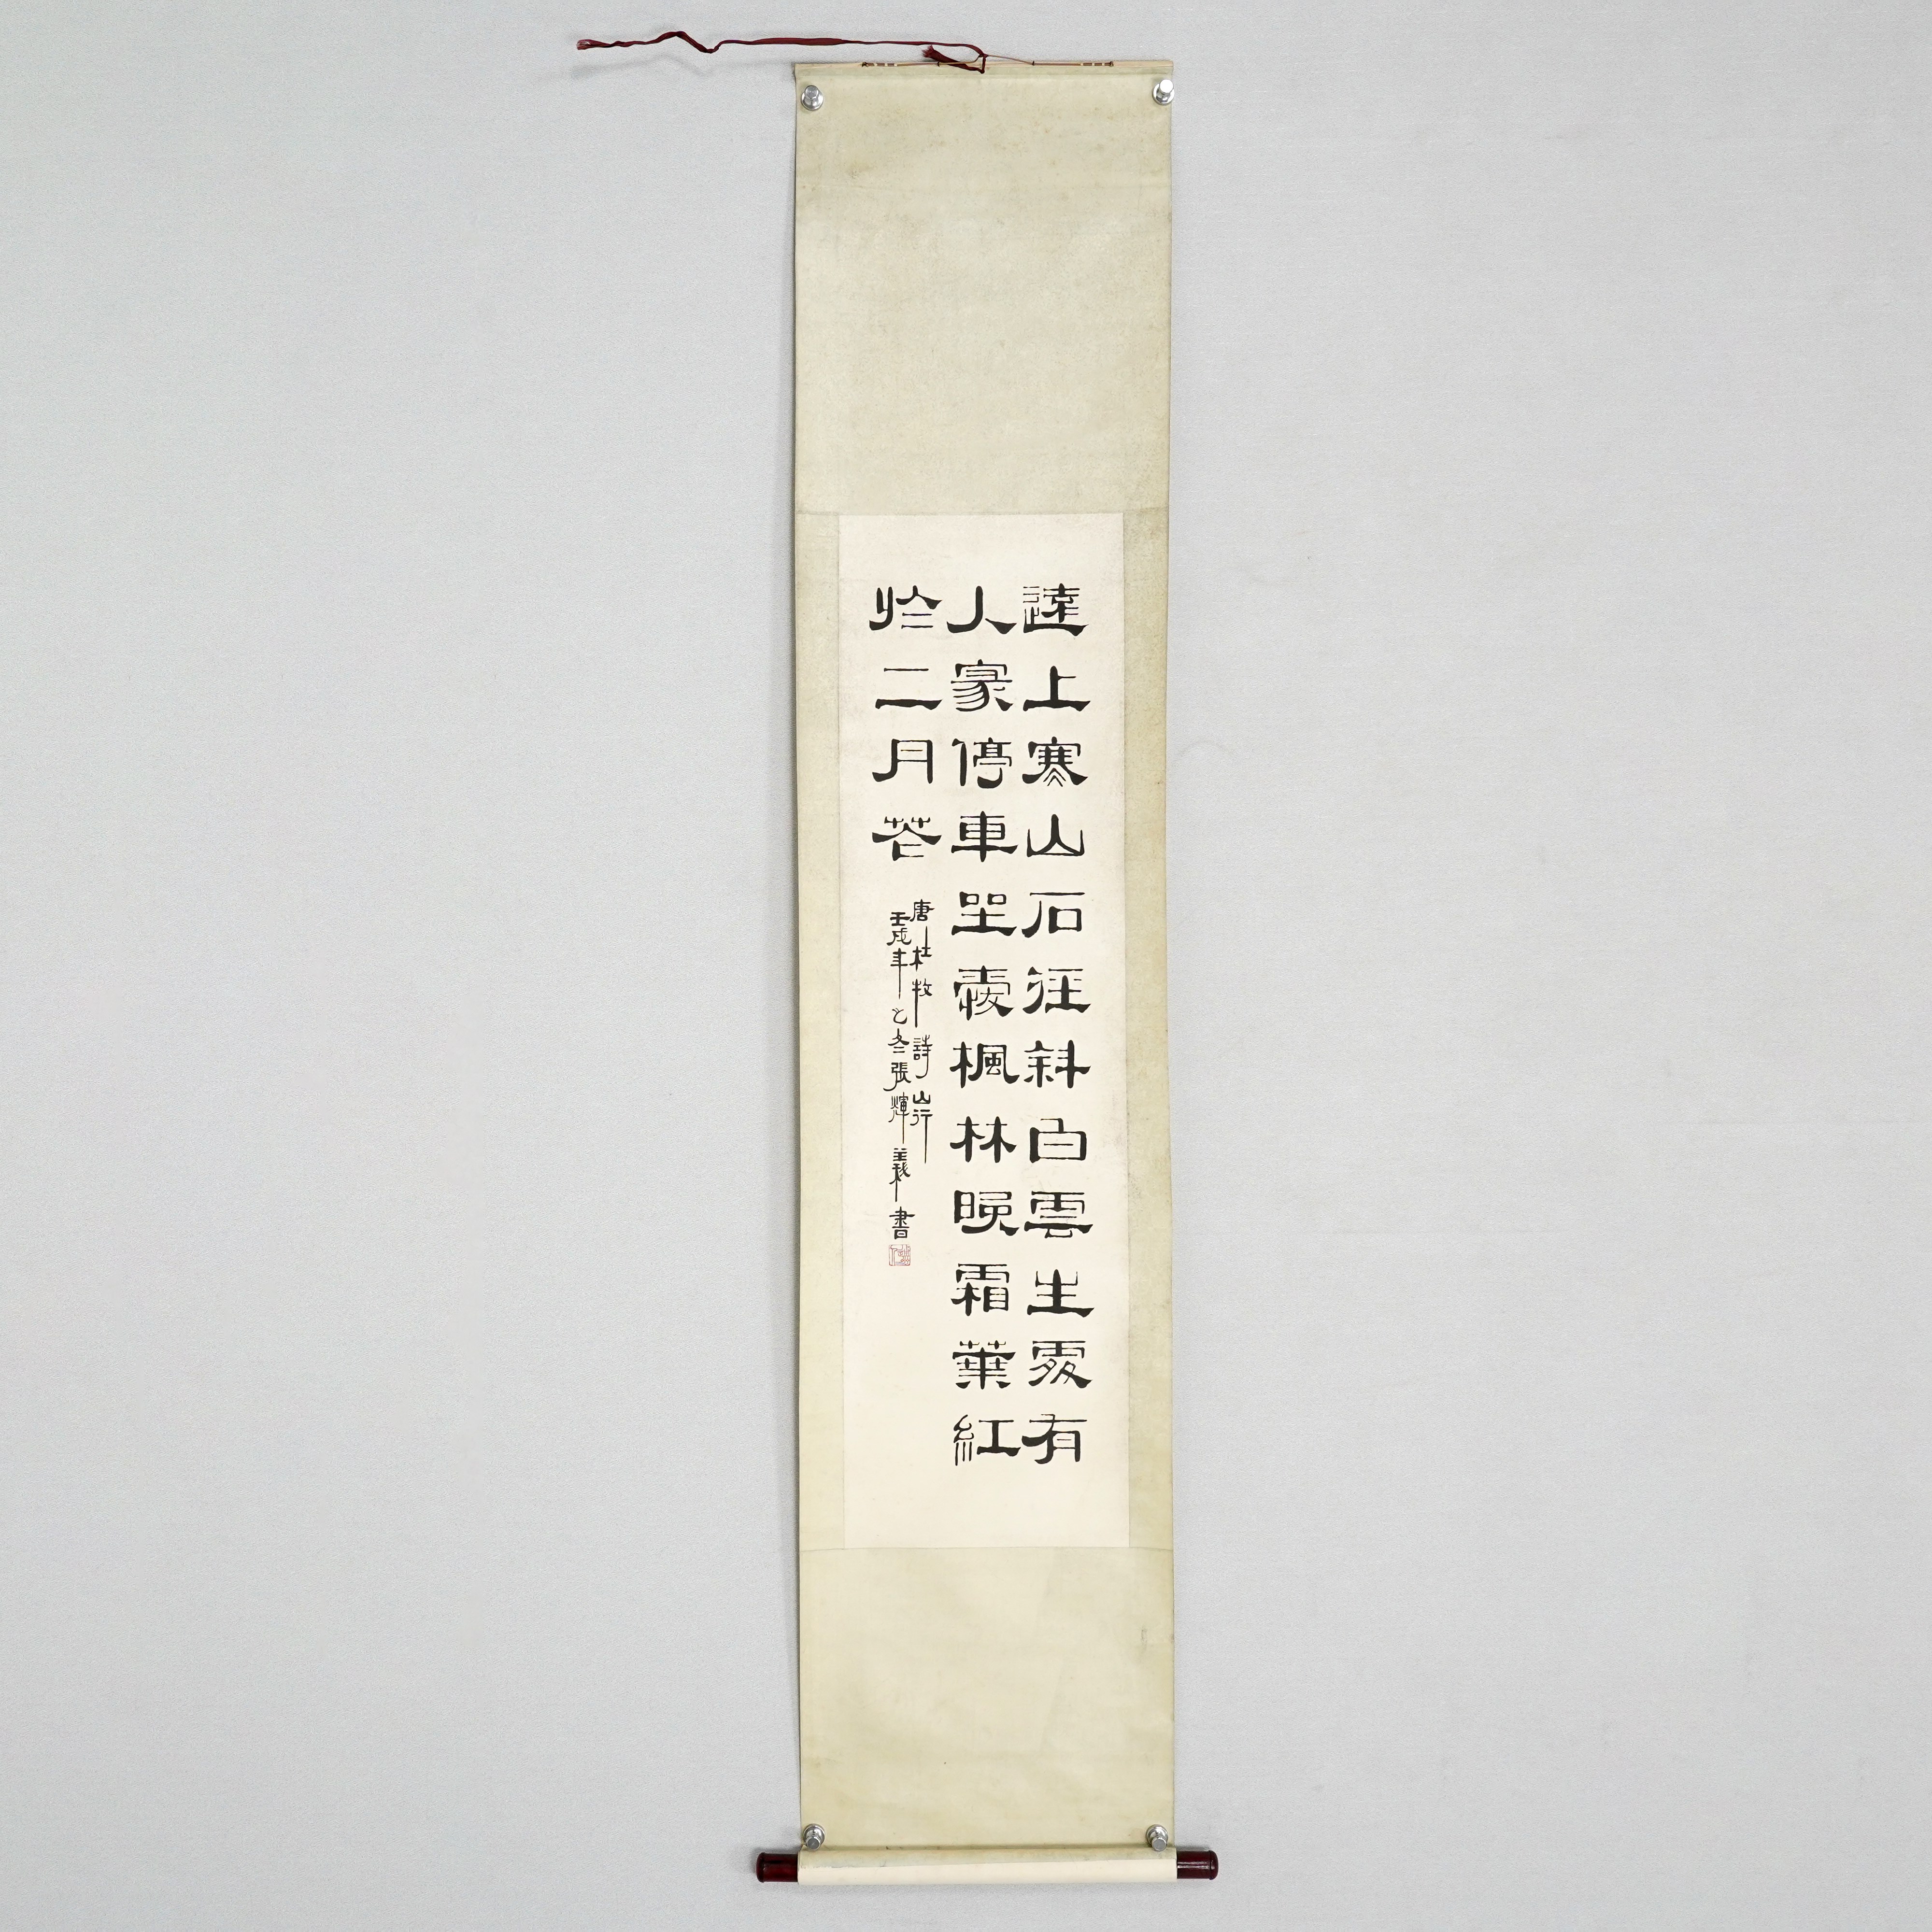 遠上寒山石徑斜白雲生處有
人家停車坐愛楓林晚霜葉紅
於二月花
唐杜牧詩山行
壬戌年之冬張煇義書